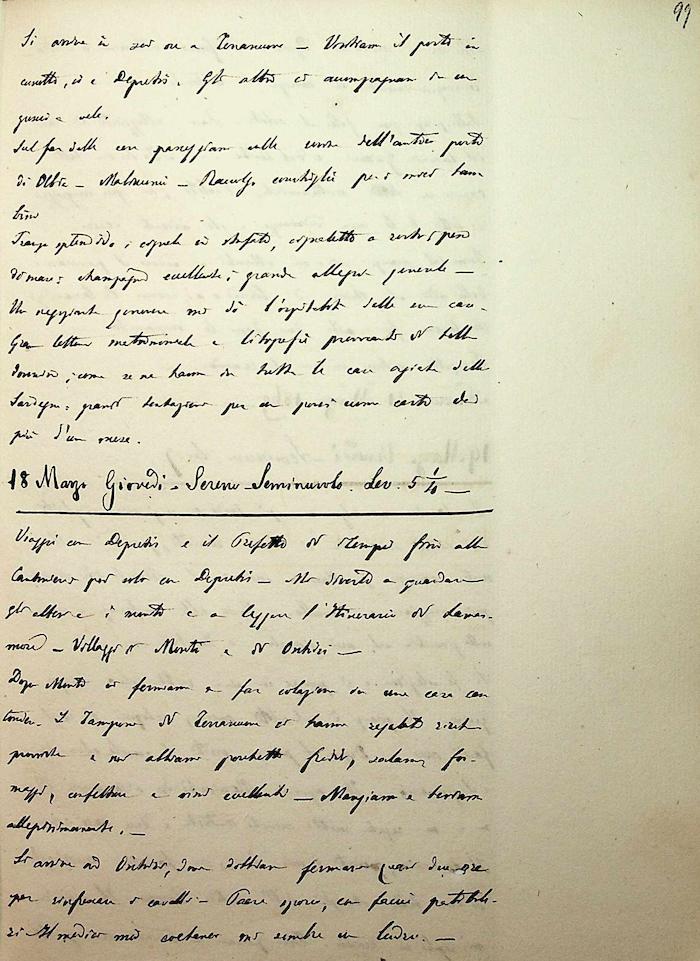 99
Si arriva a sei ore a Terranuova — Visitiam il porto in
canotto, io e Depretis. Gli altri ci accompagnan in un
guscio a vela.
Sul far della sera passeggiam sulle rovine dell'antico porto
di Olbia — Raccolgo conchiglie per i miei bam
bini
Pranzo splendido;
di mare; champagne eccellente; grande allegria generale —
Un negoziante genovese mi dà l'ospitalità della sua casa.
Gran letto matrimoniale e litografie
come se ne hanno in tutte le case agiate della
Sardegna: grandi tentazioni per un
più d'un mese.
18 Marzo Giovedì - Sereno - Seminuvolo. Lev. 5 1/4 —
Viaggio con Depretis e il Prefetto di Tempio fino alla
Cantoniera poi solo con Depretis — Mi diverto a guardare
gli alberi e i monti e a leggere l'Itinerario di Lamar-
mora — Villaggi di Monti e di Oschiri —
Dopo Monti ci fermiam a far colazione in una casa can
toniera. I di Terranuova ci hanno regalato
provviste e noi abbiam porchetto freddo, salami, for-
maggi, confetture e vini eccellenti — Mangiam e beviam
allegrissimamente. —
Si arriva ad Oschiri, dove dobbiam fermarci quasi due ore
per rinfrescare i cavalli — Paese sporco, con faccie patibola-
ri. Il medico mio coetaneo mi sembra un ladro. —